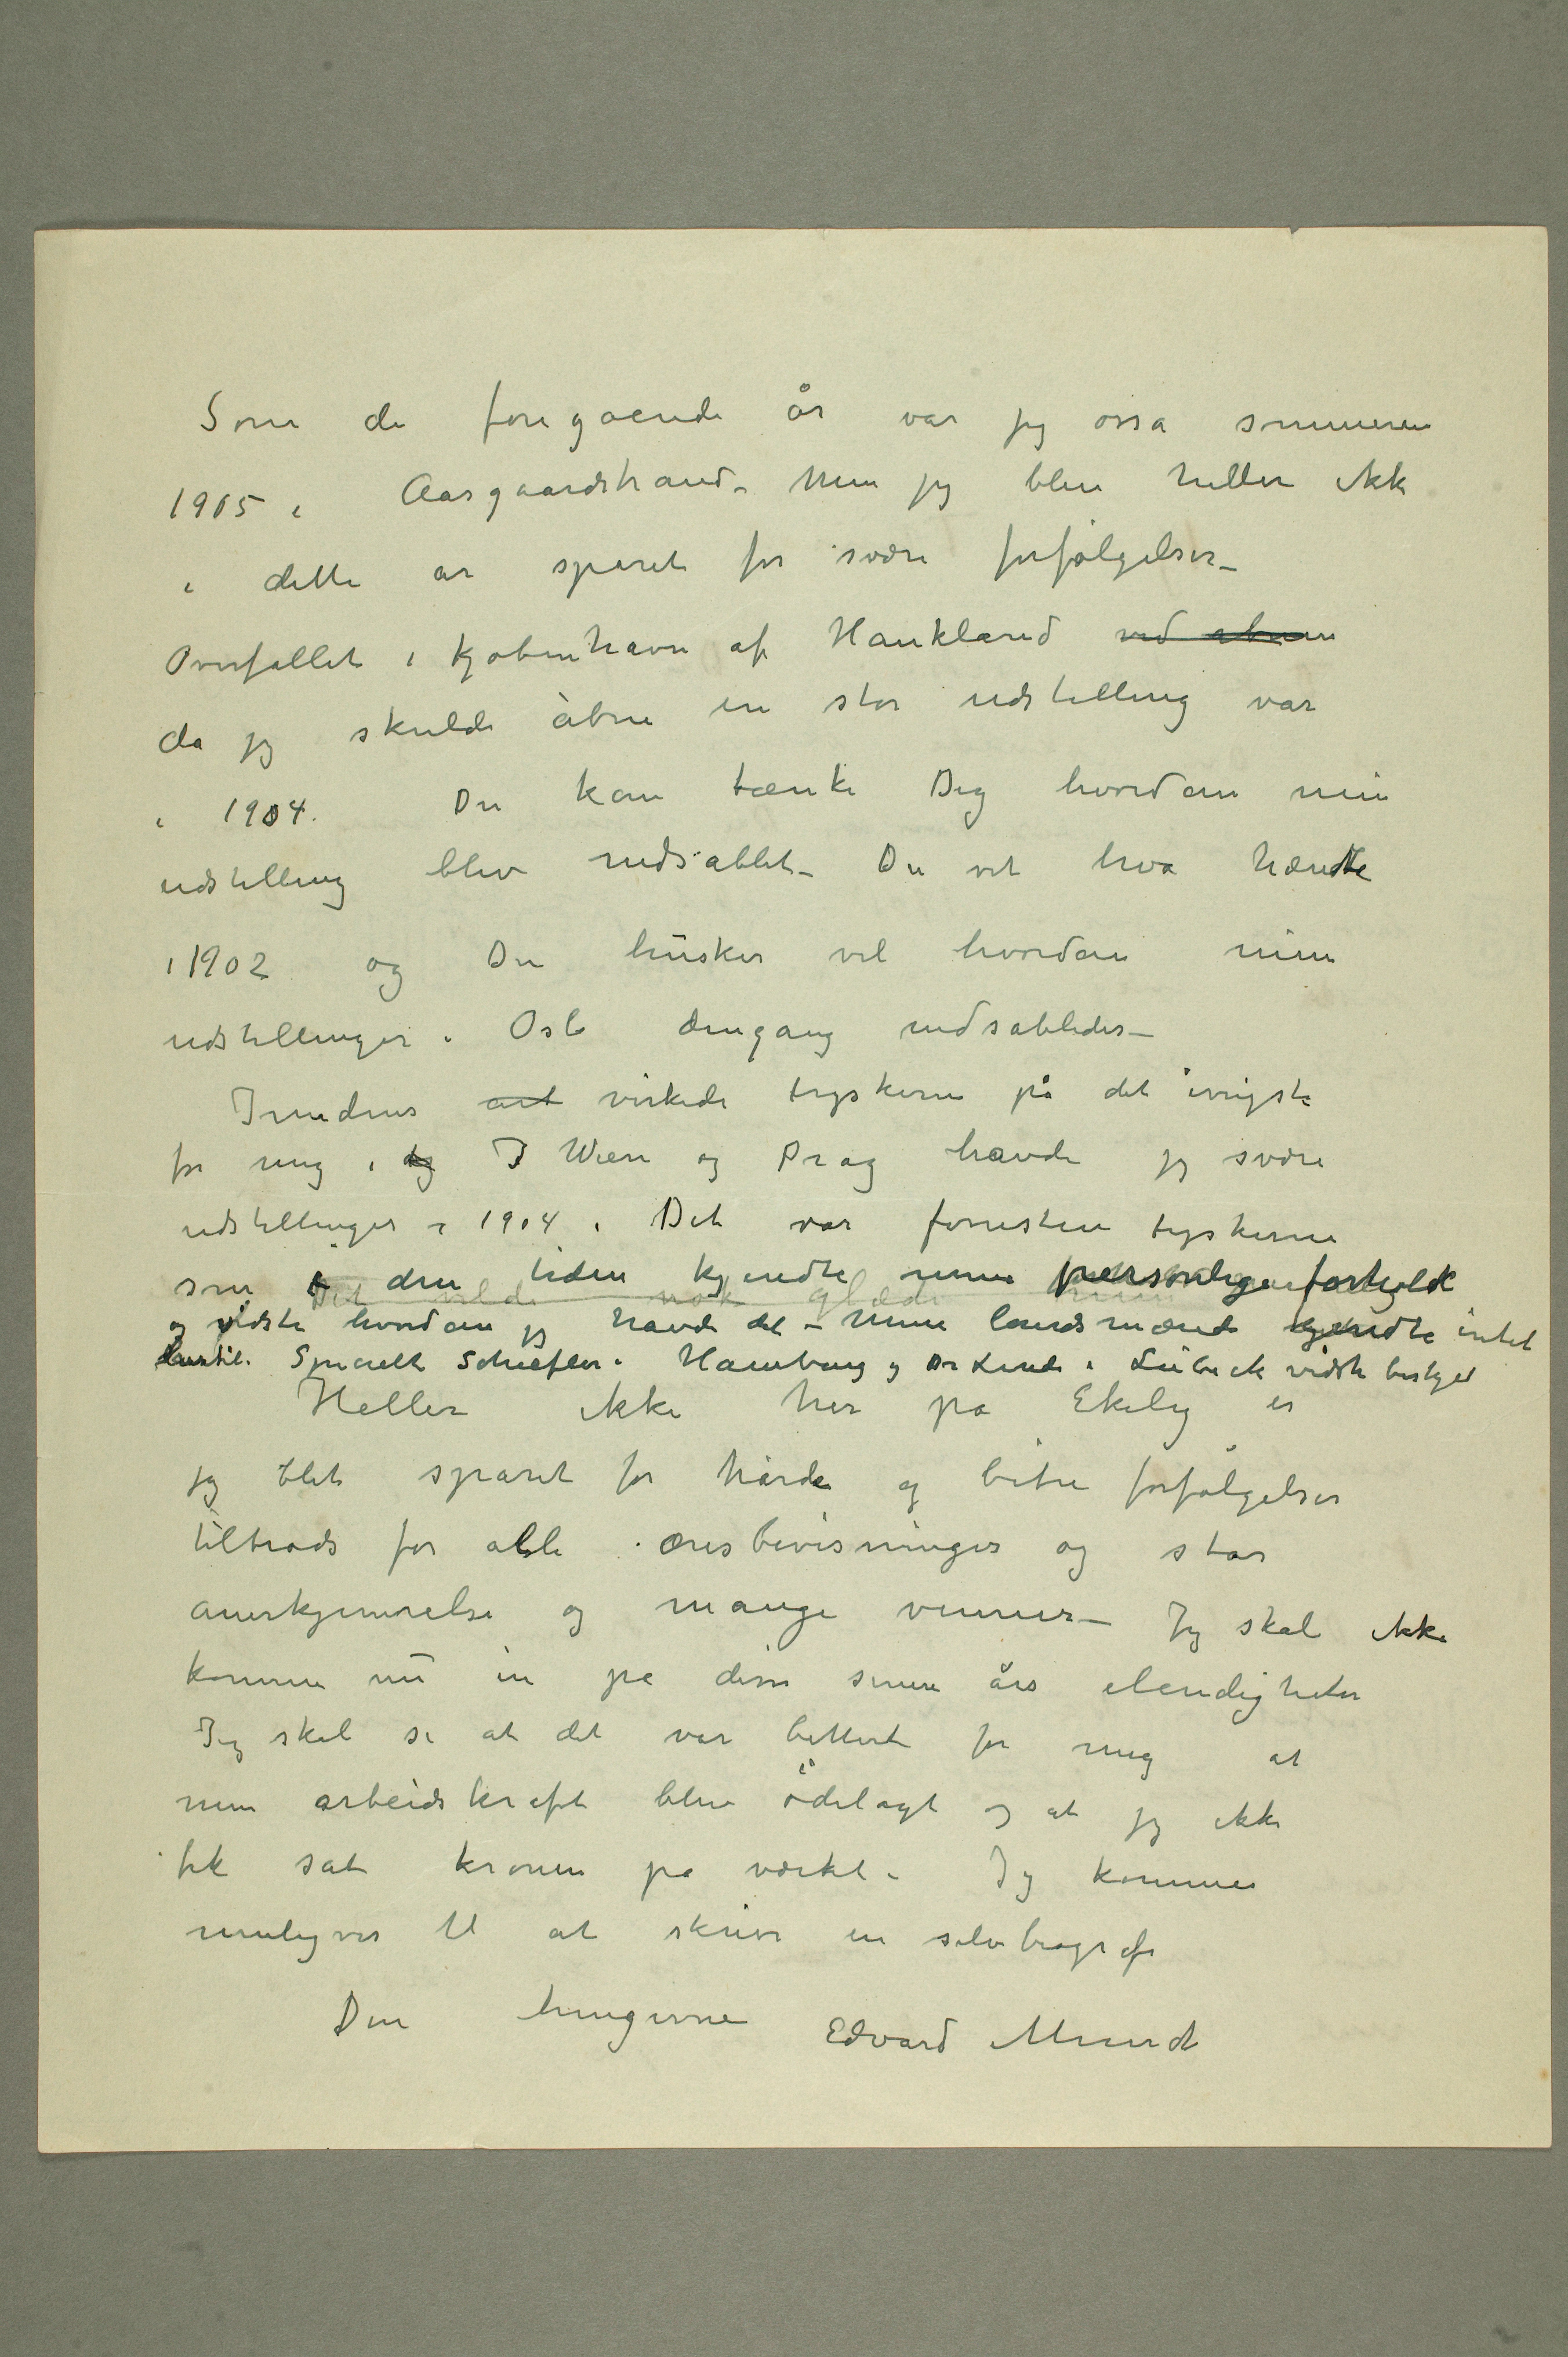 Som de foregående år var jeg osså sommeren
1905 i Aasgaardstrand – Men jeg blev heller ikke
i dette år sparet for svære forfølgelser –
Overfallet i Kjøbenhavn af Haukland ved åbnen
da jeg skulde åbne en stor udstilling var
i 1904. Du kan tænke Dig hvordan min
udstilling blev nedsablet – Du vet hva hændte
i 1902 og Du husker vel hvordan mine
udstillinger i Oslo dengang nedsabledes –
Imidens virkede tyskerne på det ivrigste
for mig i I Wien og Prag havde jeg svære
udstillinger i 1904. Det var forresten tyskerne
som i den tiden kjendte mine personlige forholde
Det vilde nok glæde
og vidste hvordan jeg havde det – Mine landsmænd kjendte intet
dertil. Specielt Schiefler i Hamburg og Dr Linde i Lübeck vidste beskjed
Heller ikke her på Ekely er
jeg blet sparet for hårde og bitre forfølgelser
tiltrods for alle æresbevisninger og stor
anerkjennelse og mange venner – Jeg skal ikke
komme nu in på disse senere års elendigheter
Jeg skal si at det var bittert for mig at
min arbeidskraft blev ødelagt og at jeg ikke
fik sat kronen på værket – Jeg kommer
muligvis til at skrive en selvbiografi
Din hengivne Edvard Munch